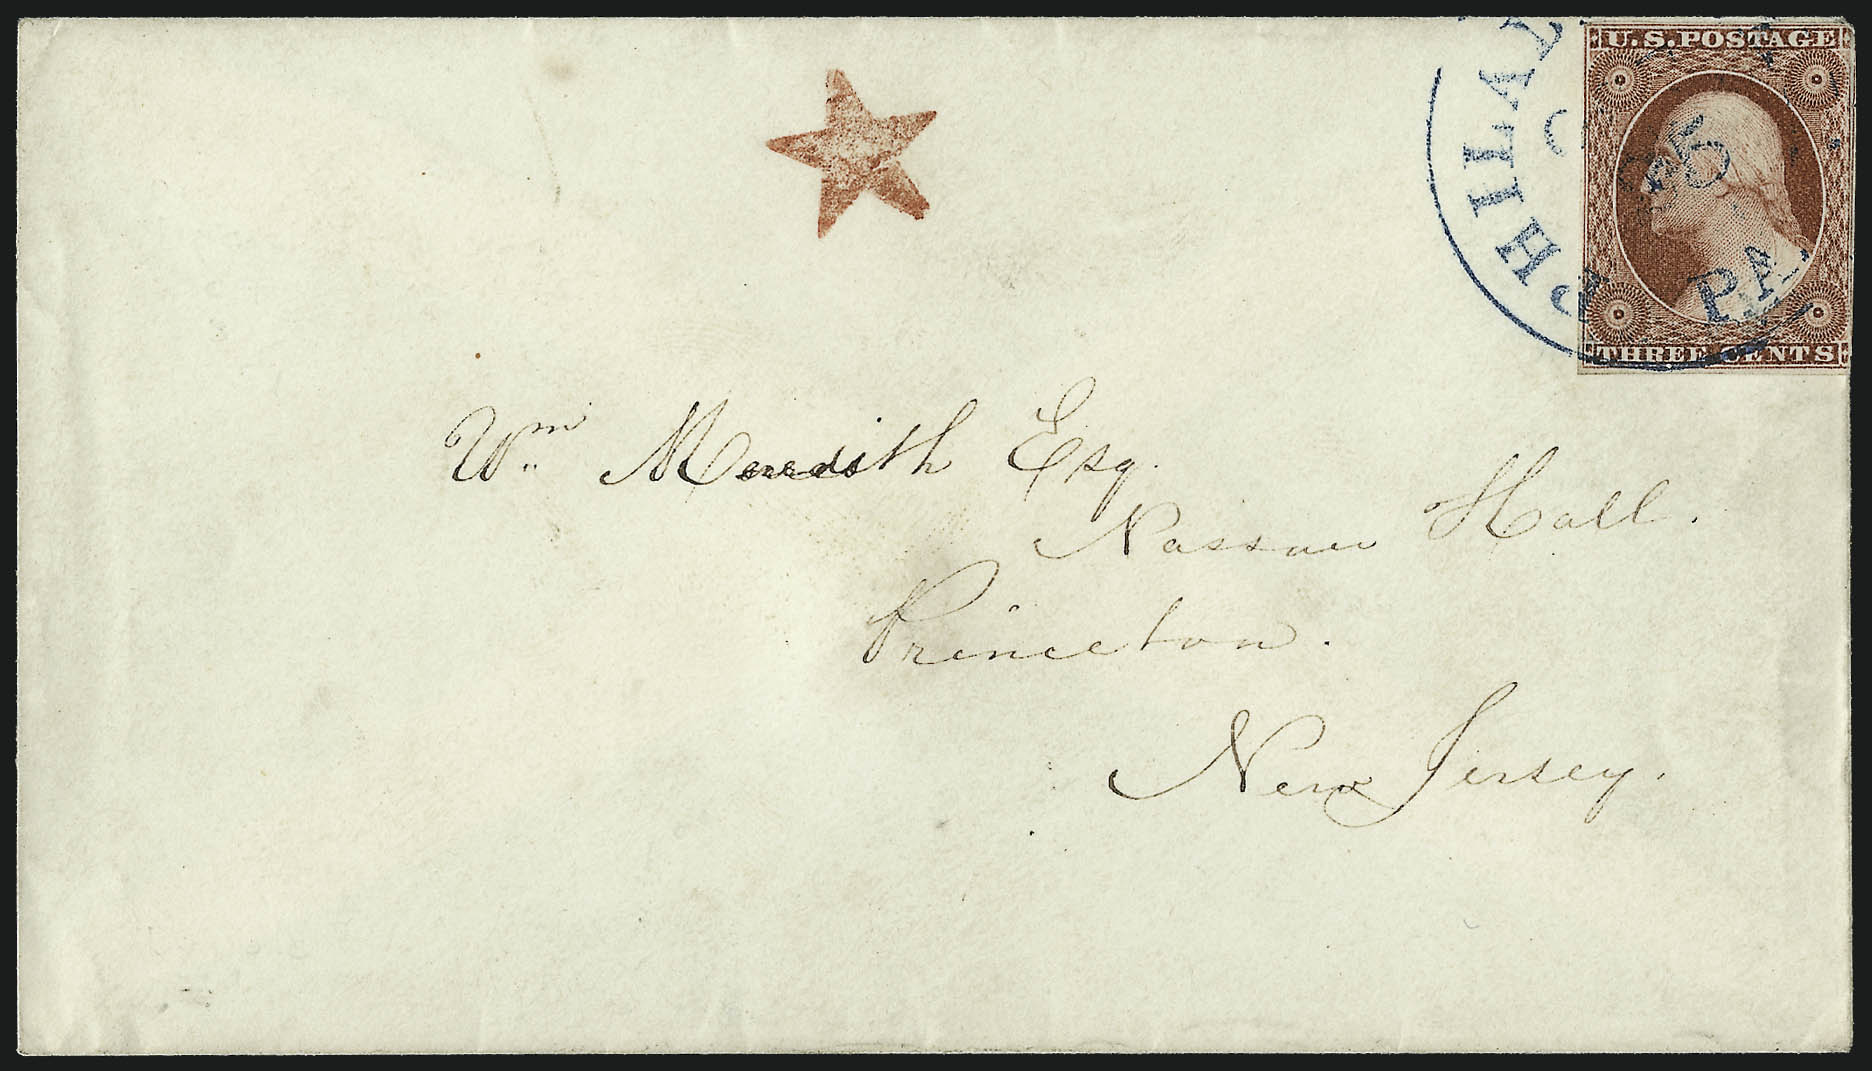 U.S. POSTAGE
THREE CENTS
PHILAD
25
PA.
Wm Meredith Esq.
Nassau Hall.
Princeton.
New Jersey.